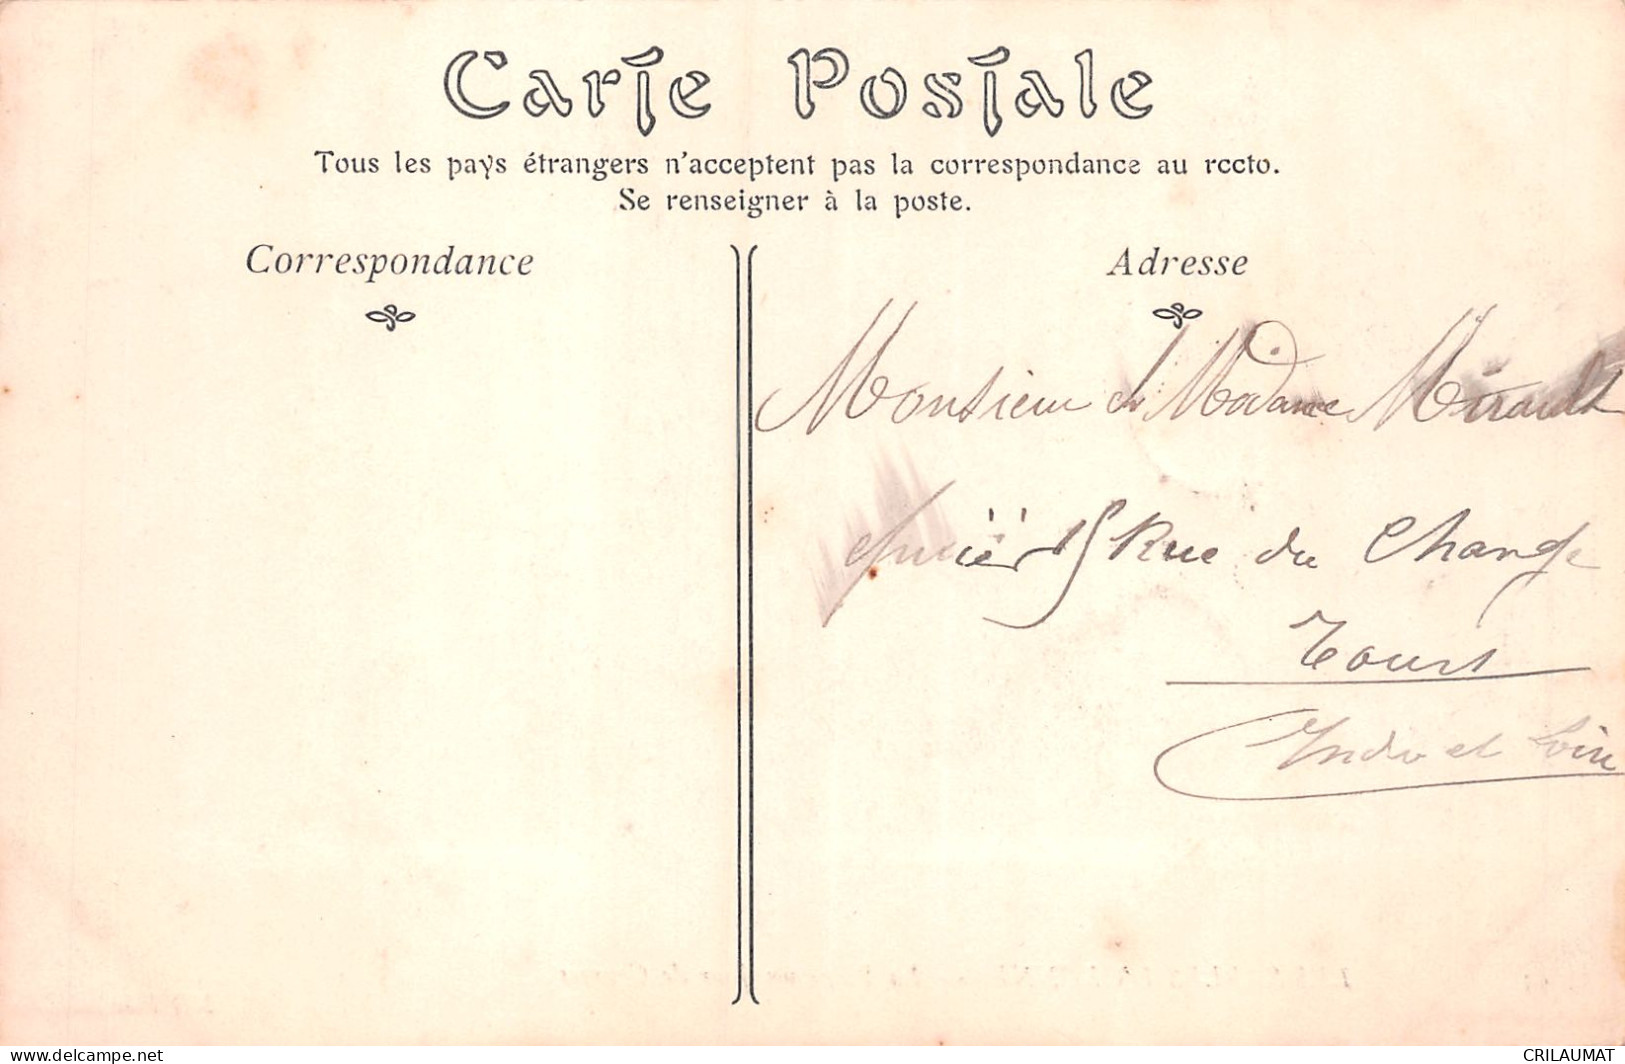 Carte Postale
Tous les pays étrangers n'acceptent pas la correspondance au recto.
Se renseigner à la poste.
Correspondance
Adresse
Monsieur et Madame Mirault
15 Rue du Change
Tours
Indre et Loire
delcampe.net
CRILAUMAT